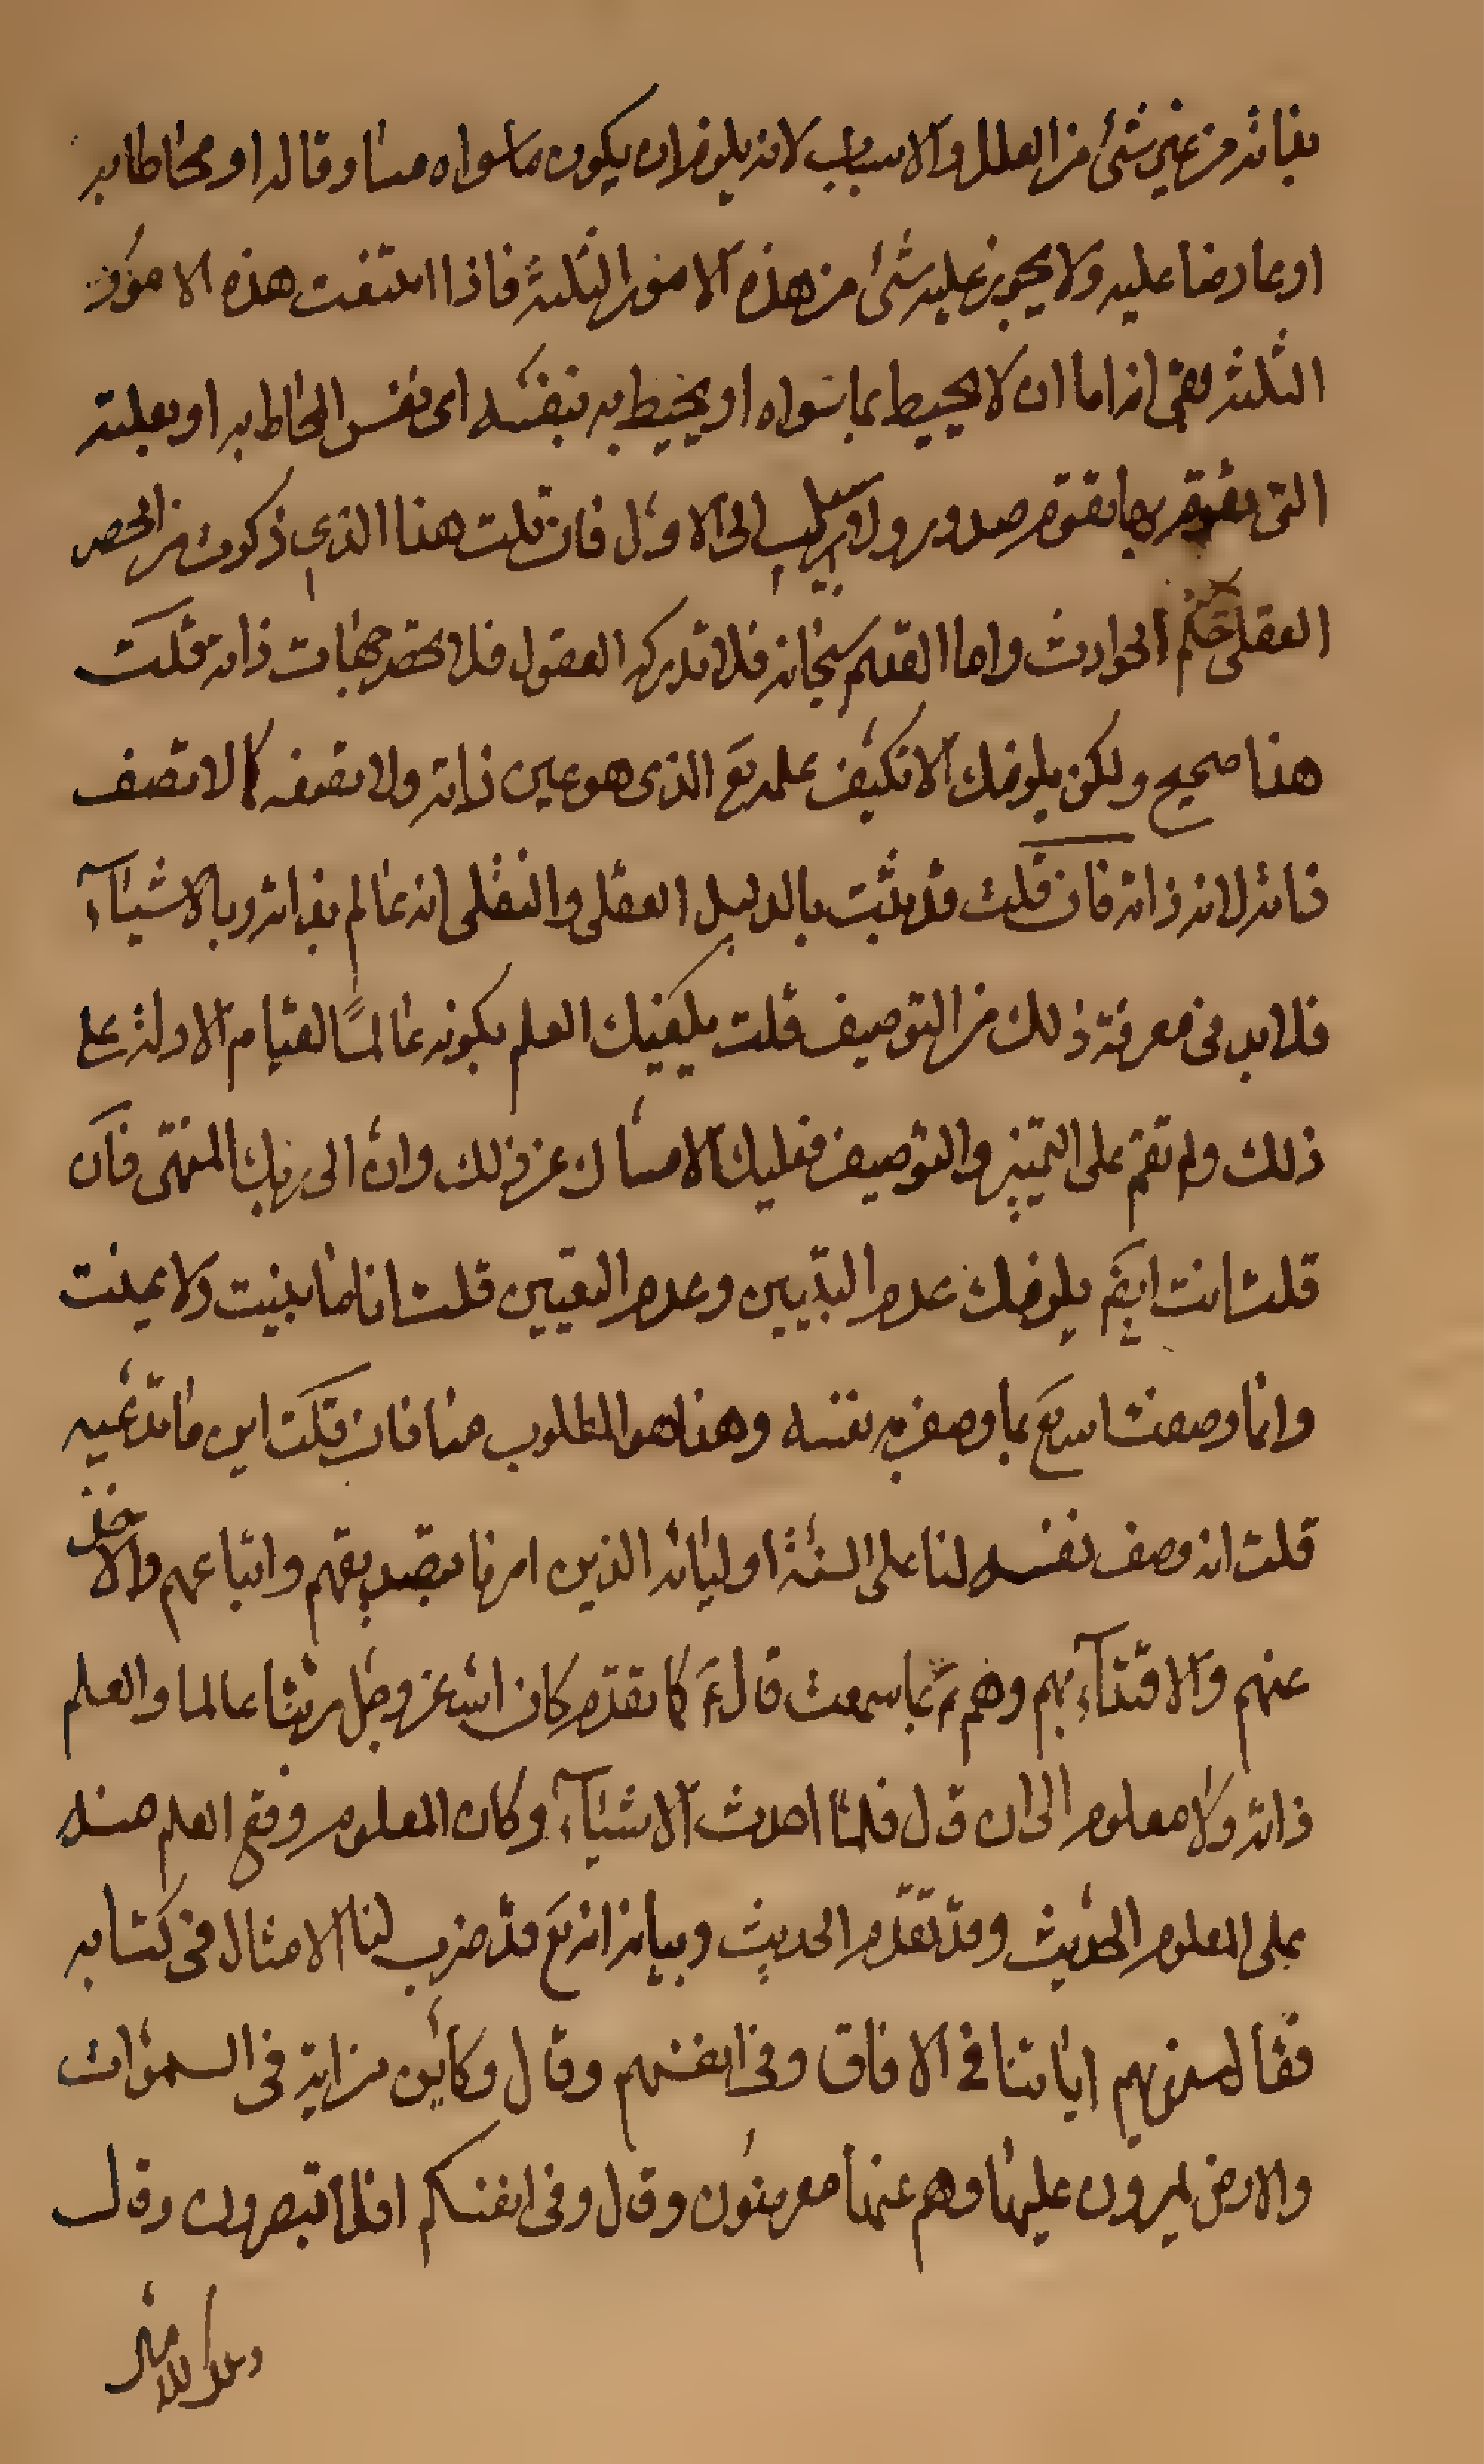 بذاته من غير شئ من العلل والاسباب لانه يلزم ان يكون ما سواه مساوقا له او محاطا به
او عارضا عليه ولا يجوز عليه شئ من هذه الامور الثلثة فاذا انتفت هذه الامور
الثلثة بقى انه اما ان لا يحيط بما سواه او يحيط به بنفسه اى نفس المحاط به او بعلته
التى يتقوم بها تقوم صدور ولا سبيل الى الاول فان قلت هذا الذى ذكرت من الحصر
العقلى حكم الحوادث واما القديم سبحانه فلا تدركه العقول فلا تحصر جهات ذاته قلت
هذا صحيح ولكن يلزمك الا تكيف علمه تع الذى هو عين ذاته ولا تصفه كما لا تصف
ذاته لانه ذاته فان قلت قد ثبت بالدليل العقلى والنقلى انه عالم بذاته وبالاشياء
فلا بد فى معرفة ذلك من التوصيف قلت يكفيك العلم بكونه عالما لقيام الادلة على
ذلك ولم تقم على التمييز والتوصيف فعليك الامساك عن ذلك وان الى ربك المنتهى فان
قلت انت ايضم يلزمك عدم التبيين وعدم التعيين قلت انا ما بينت ولا عينت
وانما وصفت الله تع بما وصف به نفسه وهذا هو المطلوب منا فان قلت اين ما تدعيه
قلت انه وصف نفسه لنا على السنة اوليائه الذين امرنا بتصديقهم واتباعهم والاخذ
عنهم والاقتداء بهم وهم بما سمعت قال ع كما تقدم كان الله عز وجل ربنا عالما والعلم
ذاته ولا معلوم الى ان قال فلما احدث الاشياء وكان المعلوم وقع العلم منه
على المعلوم الحديث وقد تقدم الحديث وبيانه انه تع قد ضرب لنا الامثال فى كتابه
فقال سنريهم اياتنا فى الافاق وفى انفسهم وقال وكاين من اية فى السموات
والارض يمرون عليها وهم عنها معرضون وقال وفى انفسكم افلا تبصرون وقال